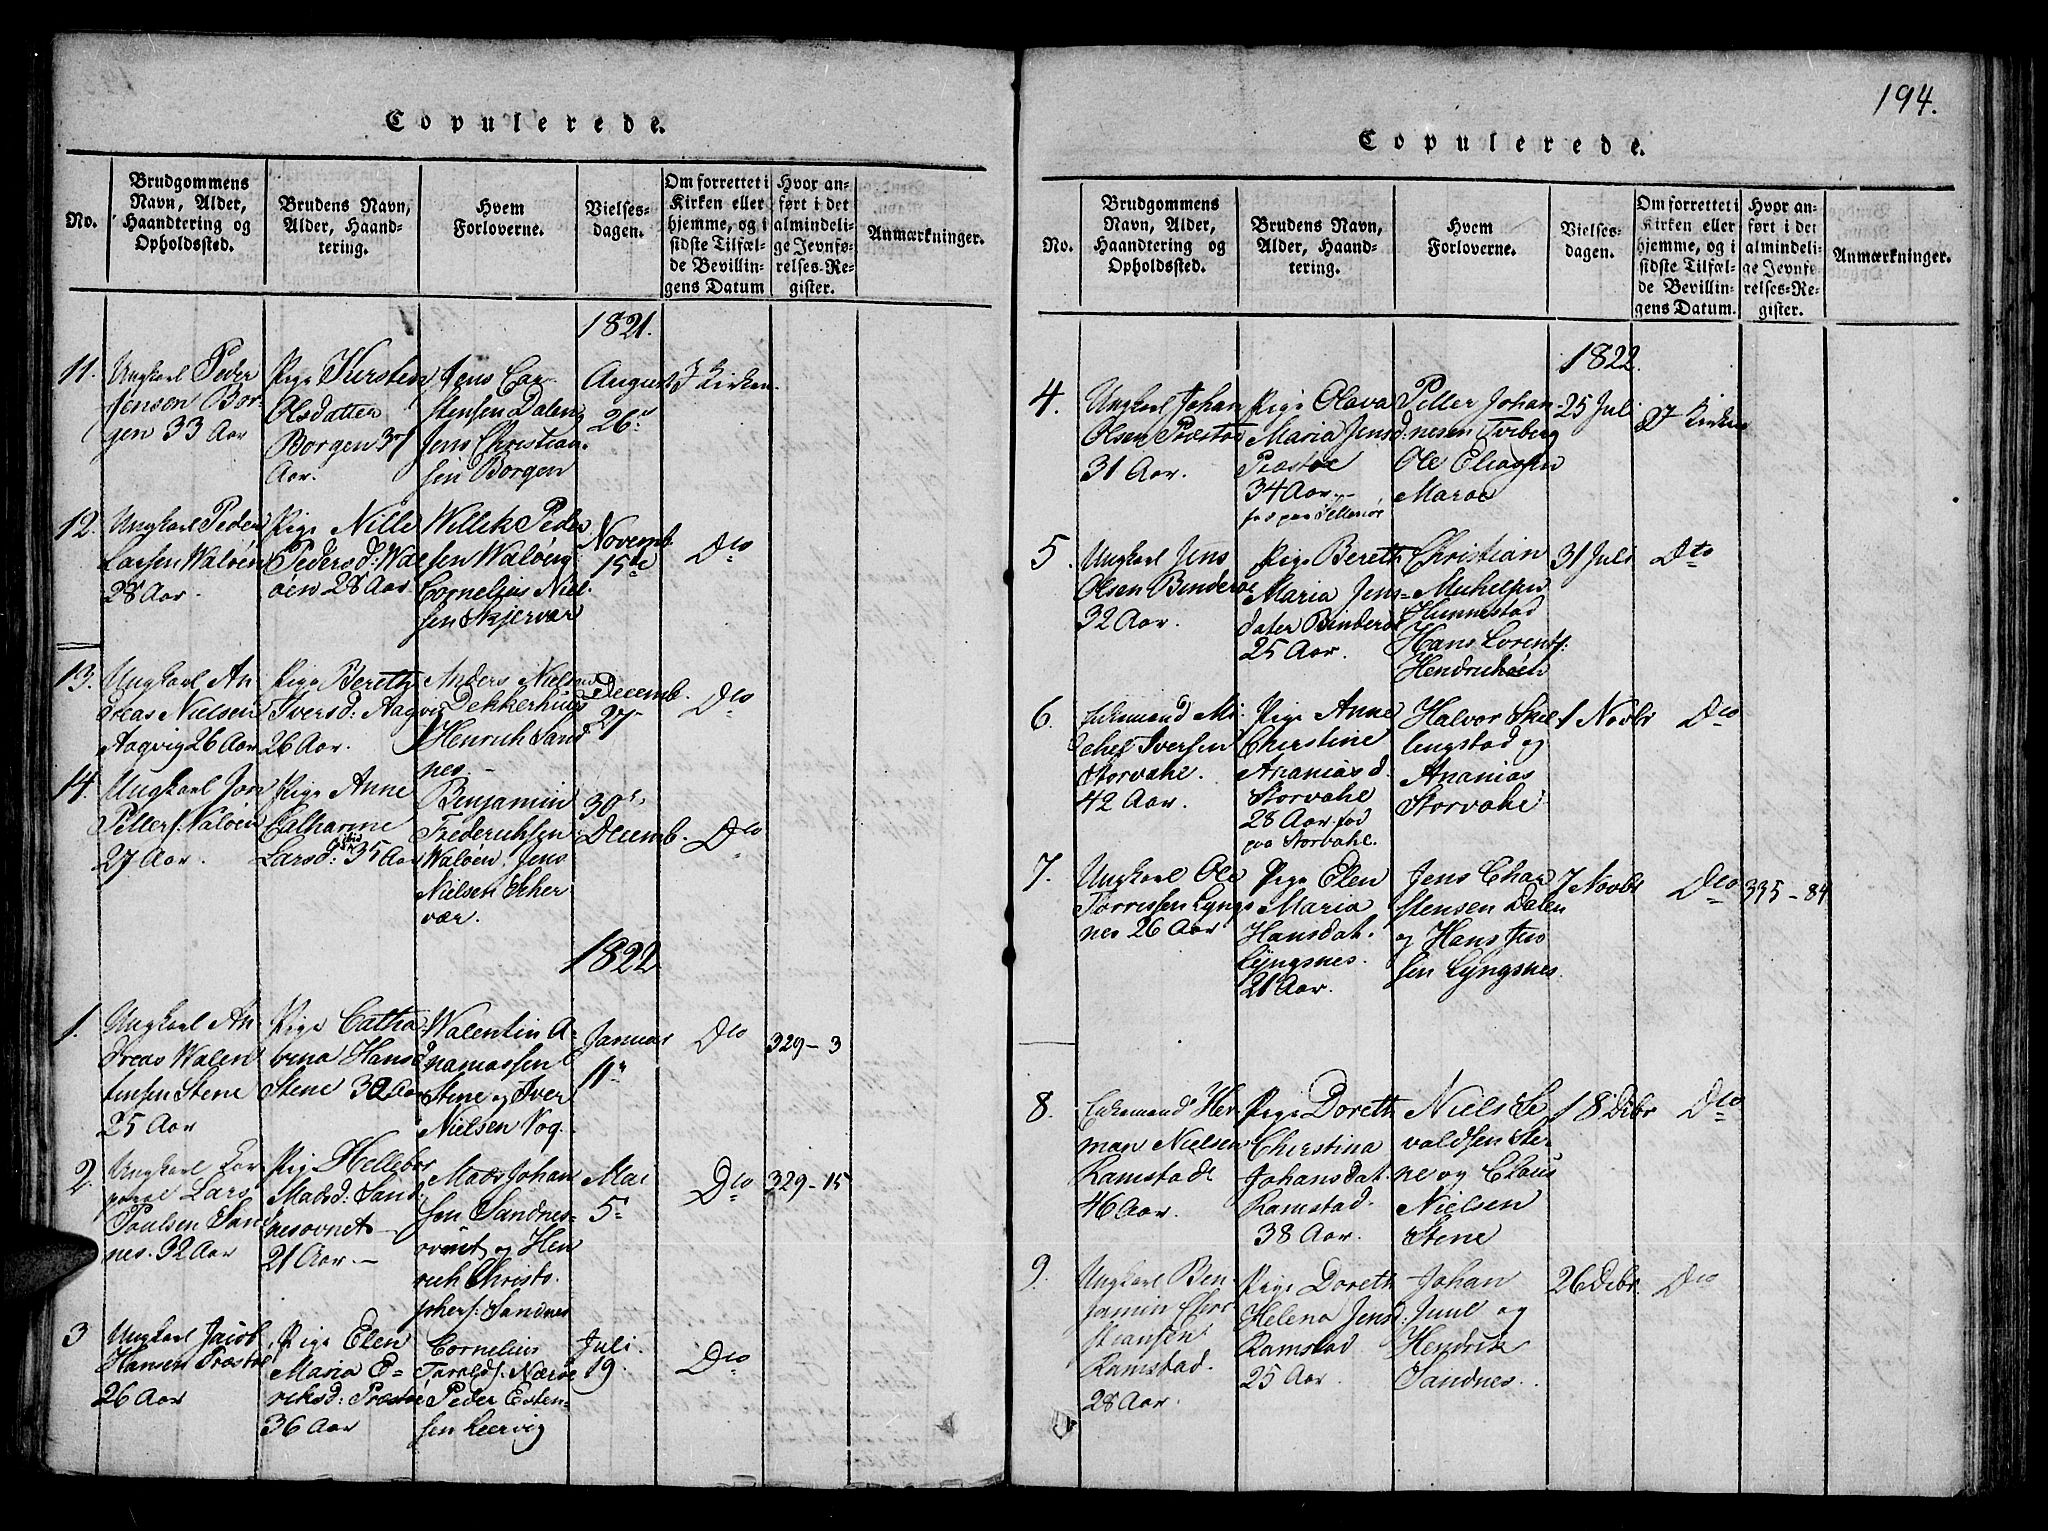 194.
Copulerede.
No.
Brudgommens
Navn, Alder,
Haandtering og
Opholdssted.
Brudens Navn,
Alder, Haand-
tering.
Hvem
Forloverne.
Vielses-
dagen.
Om forrettet i
Kirken eller
hjemme, og i
sidste Tilfæl-
de Bevillin-
gens Datum
Hvor an-
ført i det
almindeli-
ge Jevnfø-
relses-Re-
gister.
Anmærkninger.
1821.
11.
Ungkarl Peder
Jensen Bor-
gen 33 Aar
Pige Kirsten
Olsdatter
Borgen
Aar.
Jens Car-
stensen Dalen
Jens Christian-
sen Borgen
August
26
I Kirken
12.
Ungkarl Peder
Larsen Waløen
28 Aar.
Pige Nille
Pedersd: Wal
øen 28 Aar
Willik Peder
sen Waløen
Cornelius Niel-
sen Skjervær
Novemb.
15de
Dto
13.
Ungkarl An
dreas Nielsen
Aagvig 26 Aar
Pige Bereth
Iversd: Aagvig
26 Aar.
Anders Niels
Dekkerhuus
Henrich Sand
nes
Decemb.
27
Dto
14.
Ungkarl Jon
Petters: Waløen
27 Aar.
Pige Anne
Catharine
Larsd: 35 Aar
Benjamin
Frederichsen
Waløen, Jens
Nielsen Skher
vær.
30
Decemb.
Dto
1822
1.
Ungkarl An-
dreas Walen
tinsen Stene
25 Aar
Pige Catha-
rina Hansd
Stene 30 Aar
Walentin A-
namassen
Stene og Iver
Nielsen Vog.
Januar
11
Dto
329-3
2.
Ungkarl
Lars
Poulsen San
nes. 32 Aar
Pige Hellebor
Madsd: Sand
nesovnet
21 Aar.-
Mads Johan
sen Sandnes-
ovnet og Hen
rich Christo-
phers: Sandnes
Mai
5
Dto
329-15
3
Ungkarl Jacob
Hansen Præstøe
26 Aar
Pige Elen
Maria E-
riksd: Præstøe
36 Aar
Cornelius
Tarald: Nærøe
Peder Esten-
sen Leervig
Juli.
19.
Dto
Copulerede.
No.
Brudgommens
Navn, Alder,
Haandtering og
Opholdssted.
Brudens Navn,
Alder, Haand-
tering.
Hvem
Forloverne.
Vielses-
dagen.
Om forrettet i
Kirken eller
hjemme, og i
sidste Tilfæl-
de Bevillin-
gens Datum.
Hvor an-
ført i det
almindeli-
ge Jevnfø-
relses-Re-
gister.
Anmærkninger.
1822.
4.
Ungkarl Johan
Olsen Præstøe
31 Aar.
Pige Olava
Maria Jensd:
Præstøe
34 Aar.-
Petter Johan-
nesen Tviberg
Ole Eliasen
Marøe
25 Juli
I Kirken
5.
Ungkarl Jens
Olsen Binderøe
32 Aar.
Pige Bereth
Maria Jens-
dater Binderøe
25 Aar.
Christian
Michelsen
Hummestad
Hans Lorents:
Hendrichøen
31 Juli
Dto
6.
Enkemand Mi-
chel Iversen
Storvahl.
42 Aar.
Pige Anne
Cherstine
Ananias d.
Storvahl
28 Aar. fød
paa Storvahl.
Halvor Skil
lengstad og
Ananias
Storvahl
1 Novbr
Dto
7.
Ungkarl Ole
Torrissen Lyngs
nes 26 Aar
Pige Elen
Maria
Hansdat.
Lyngsnes.
21 Aar.
Jens Char
stensen Dalen
og Hans Jen
sen Lyngsnes.
7 Novbr
Dto
335-84
8.
Enkemand Her-
man Nielsen
Ramstad
46 Aar.
Pige Doreth
Cherstina
Johansdat.
Ramstad.
38 Aar.
Niels Se
valdsen Ste-
ne og Claus
Nielsen
Stene
18 Debr
Dto
9.
Ungkarl Ben
jamin Chri-
stiansen
Ramstad.
28 Aar.
Pige Doreth
Helena Jensd:
Ramstad
25 Aar.
Johan
Juul og
Hendrik
Sandnes.
26 Debr.
Dto